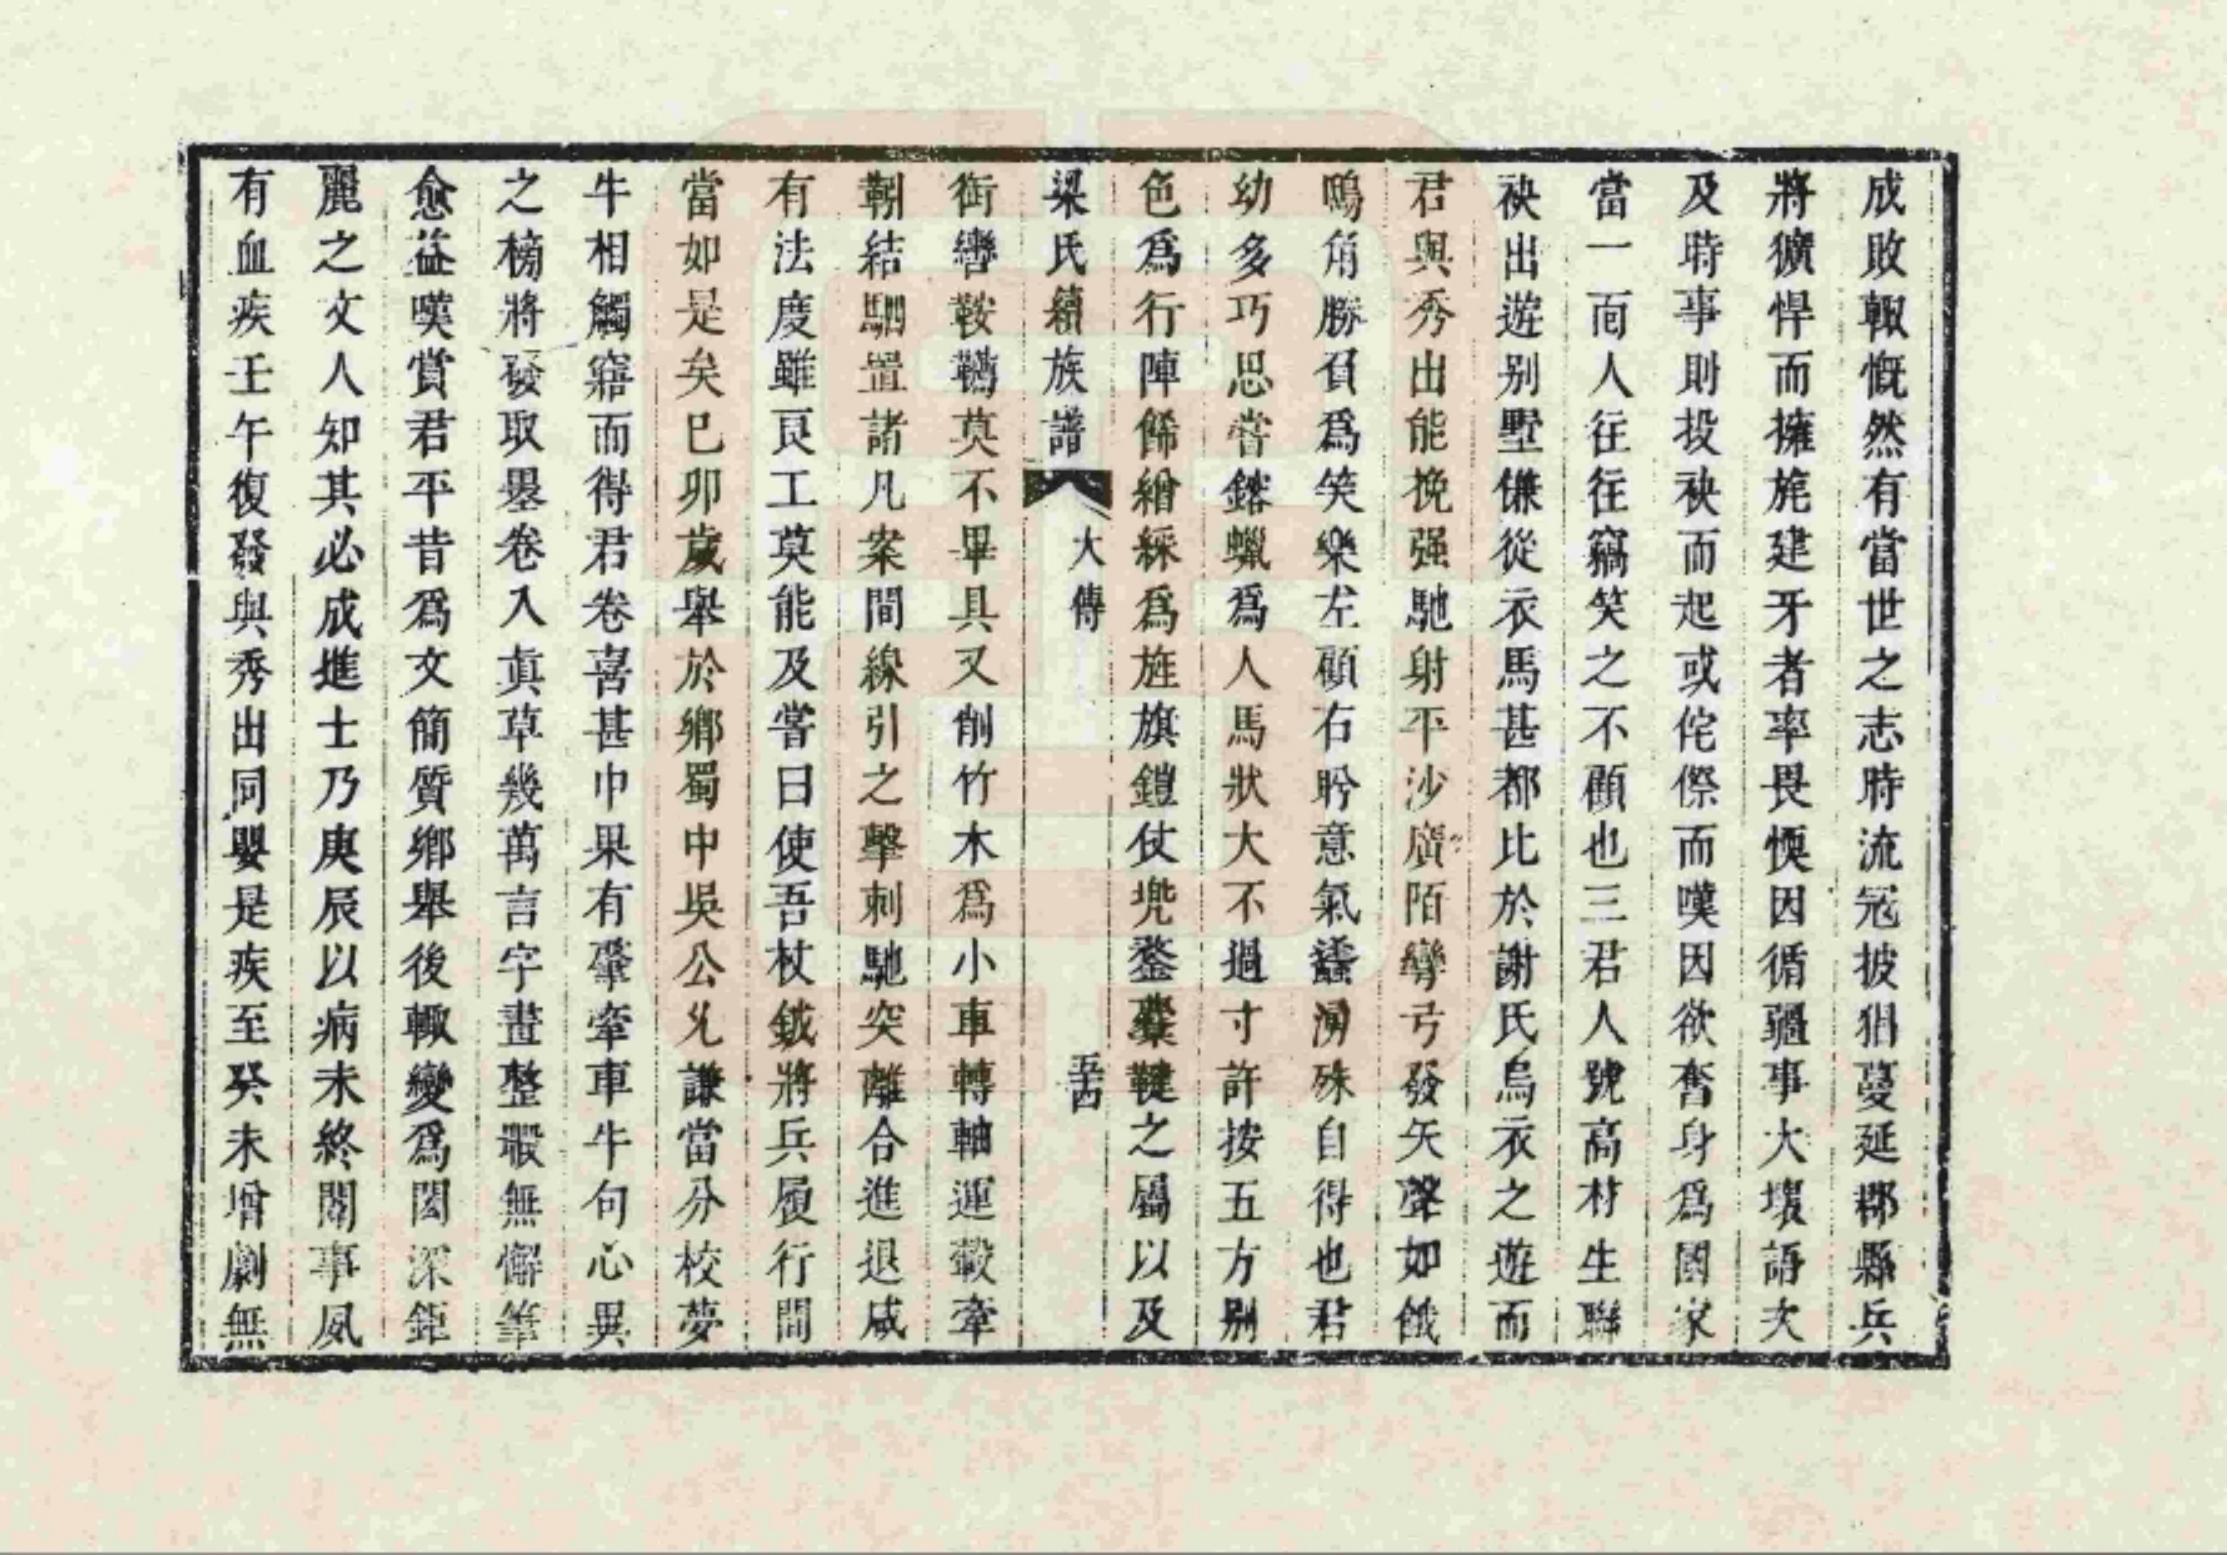 成敗輙慨然有當世之志時流冦披猖蔓延郡縣兵
將獷悍而擁旄建牙者率畏愞因循疆事大壞語次
及時事則投袂而起或侘傺而嘆因欲奮身爲國家
當一面人往往竊笑之不顧也三君人號高材生聯
袂出遊别墅傔從衣馬甚都比於謝氏烏衣之遊而
君與秀出能挽强馳射平沙廣陌彎弓發矢聲如餓
鴟角勝負爲笑樂左顧右盻意氣蠭湧殊自得也君
幼多巧思嘗鎔蠟爲人馬狀大不過寸許按五方别
色爲行陣餙繒綵爲旌旗鎧仗兠鍪櫜鞬之屬以及
梁氏續族譜 大傳 五十四
銜轡鞍韉莫不畢具又削竹木爲小車轉軸運轂牽
靷結駟置諸凡案間線引之擊刺馳突離合進退咸
有法度雖良工莫能及嘗曰使吾杖鉞將兵履行間
當如是矣巳卯歲舉於鄉蜀中吳公兆謙當分校夢
牛相觸寤而得君卷喜甚巾果有肇牽車牛句心異
之榜將發取墨卷入眞草幾萬言字畫整暇無懈筆
愈益嘆賞君平昔爲文簡質鄉舉後輙變爲閎深鉅
麗之文人知其必成進士乃庚辰以病未終闈事夙
有血疾壬午復發與秀出同嬰是疾至癸未增劇無